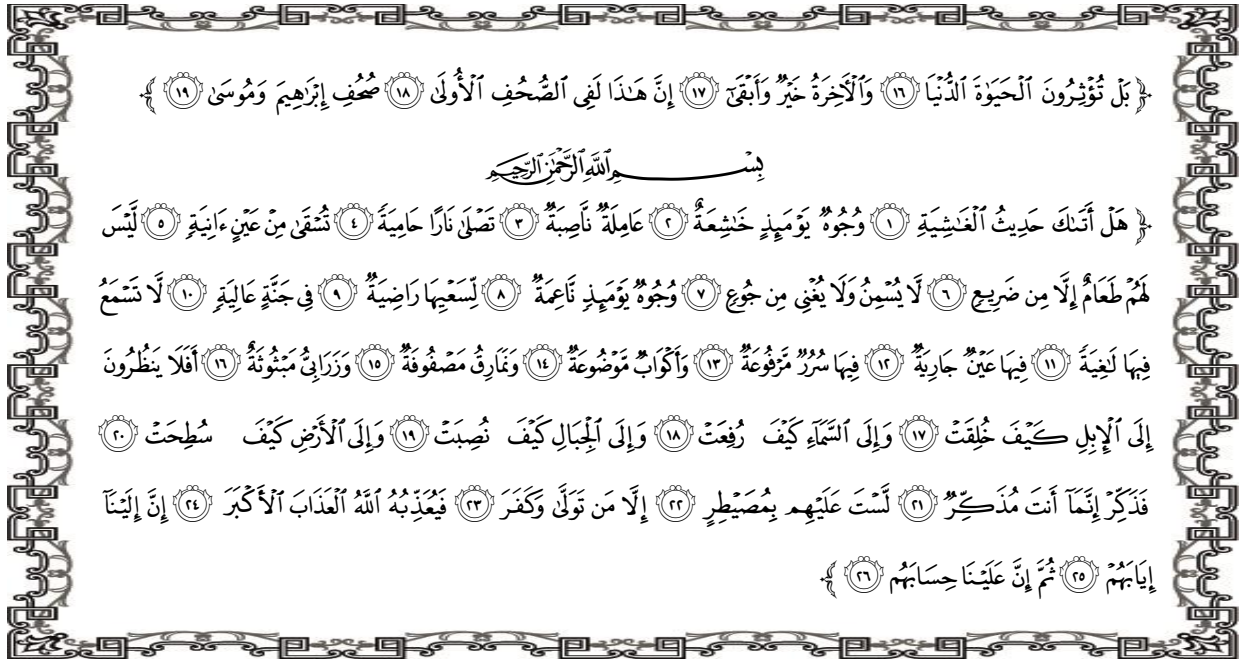 ﴿ بَلۡ تُؤۡثِرُونَ ٱلۡحَيَوٰةَ ٱلدُّنۡيَا ١٦ وَٱلۡأٓخِرَةُ خَيۡرٞ وَأَبۡقَىٰٓ ١٧ إِنَّ هَٰذَا لَفِي ٱلصُّحُفِ ٱلۡأُولَىٰ ١٨ صُحُفِ إِبۡرَٰهِيمَ وَمُوسَىٰ ١٩ ﴾
بِسۡمِ ٱللَّهِ ٱلرَّحۡمَٰنِ ٱلرَّحِيمِ
﴿ هَلۡ أَتَىٰكَ حَدِيثُ ٱلۡغَٰشِيَةِ ١ وُجُوهٞ يَوۡمَئِذٍ خَٰشِعَةٌ ٢ عَامِلَةٞ نَّاصِبَةٞ ٣ تَصۡلَىٰ نَارًا حَامِيَةٗ ٤ تُسۡقَىٰ مِنۡ عَيۡنٍ ءَانِيَةٖ ٥ لَّيۡسَ
لَهُمۡ طَعَامٌ إِلَّا مِن ضَرِيعٖ ٦ لَّا يُسۡمِنُ وَلَا يُغۡنِي مِن جُوعٖ ٧ وُجُوهٞ يَوۡمَئِذٖ نَّاعِمَةٞ ٨ لِّسَعۡيِهَا رَاضِيَةٞ ٩ فِي جَنَّةٍ عَالِيَةٖ ١٠ لَّا تَسۡمَعُ
فِيهَا لَٰغِيَةٗ ١١ فِيهَا عَيۡنٞ جَارِيَةٞ ١٢ فِيهَا سُرُرٞ مَّرۡفُوعَةٞ ١٣ وَأَكۡوَابٞ مَّوۡضُوعَةٞ ١٤ وَنَمَارِقُ مَصۡفُوفَةٞ ١٥ وَزَرَابِيُّ مَبۡثُوثَةٌ ١٦ أَفَلَا يَنظُرُونَ
إِلَى ٱلۡإِبِلِ كَيۡفَ خُلِقَتۡ ١٧ وَإِلَى ٱلسَّمَآءِ كَيۡفَ رُفِعَتۡ ١٨ وَإِلَى ٱلۡجِبَالِ كَيۡفَ نُصِبَتۡ ١٩ وَإِلَى ٱلۡأَرۡضِ كَيۡفَ سُطِحَتۡ ٢٠
فَذَكِّرۡ إِنَّمَآ أَنتَ مُذَكِّرٞ ٢١ لَّسۡتَ عَلَيۡهِم بِمُصَيۡطِرٍ ٢٢ إِلَّا مَن تَوَلَّىٰ وَكَفَرَ ٢٣ فَيُعَذِّبُهُ ٱللَّهُ ٱلۡعَذَابَ ٱلۡأَكۡبَرَ ٢٤ إِنَّ إِلَيۡنَآ
إِيَابَهُمۡ ٢٥ ثُمَّ إِنَّ عَلَيۡنَا حِسَابَهُم ٢٦ ﴾